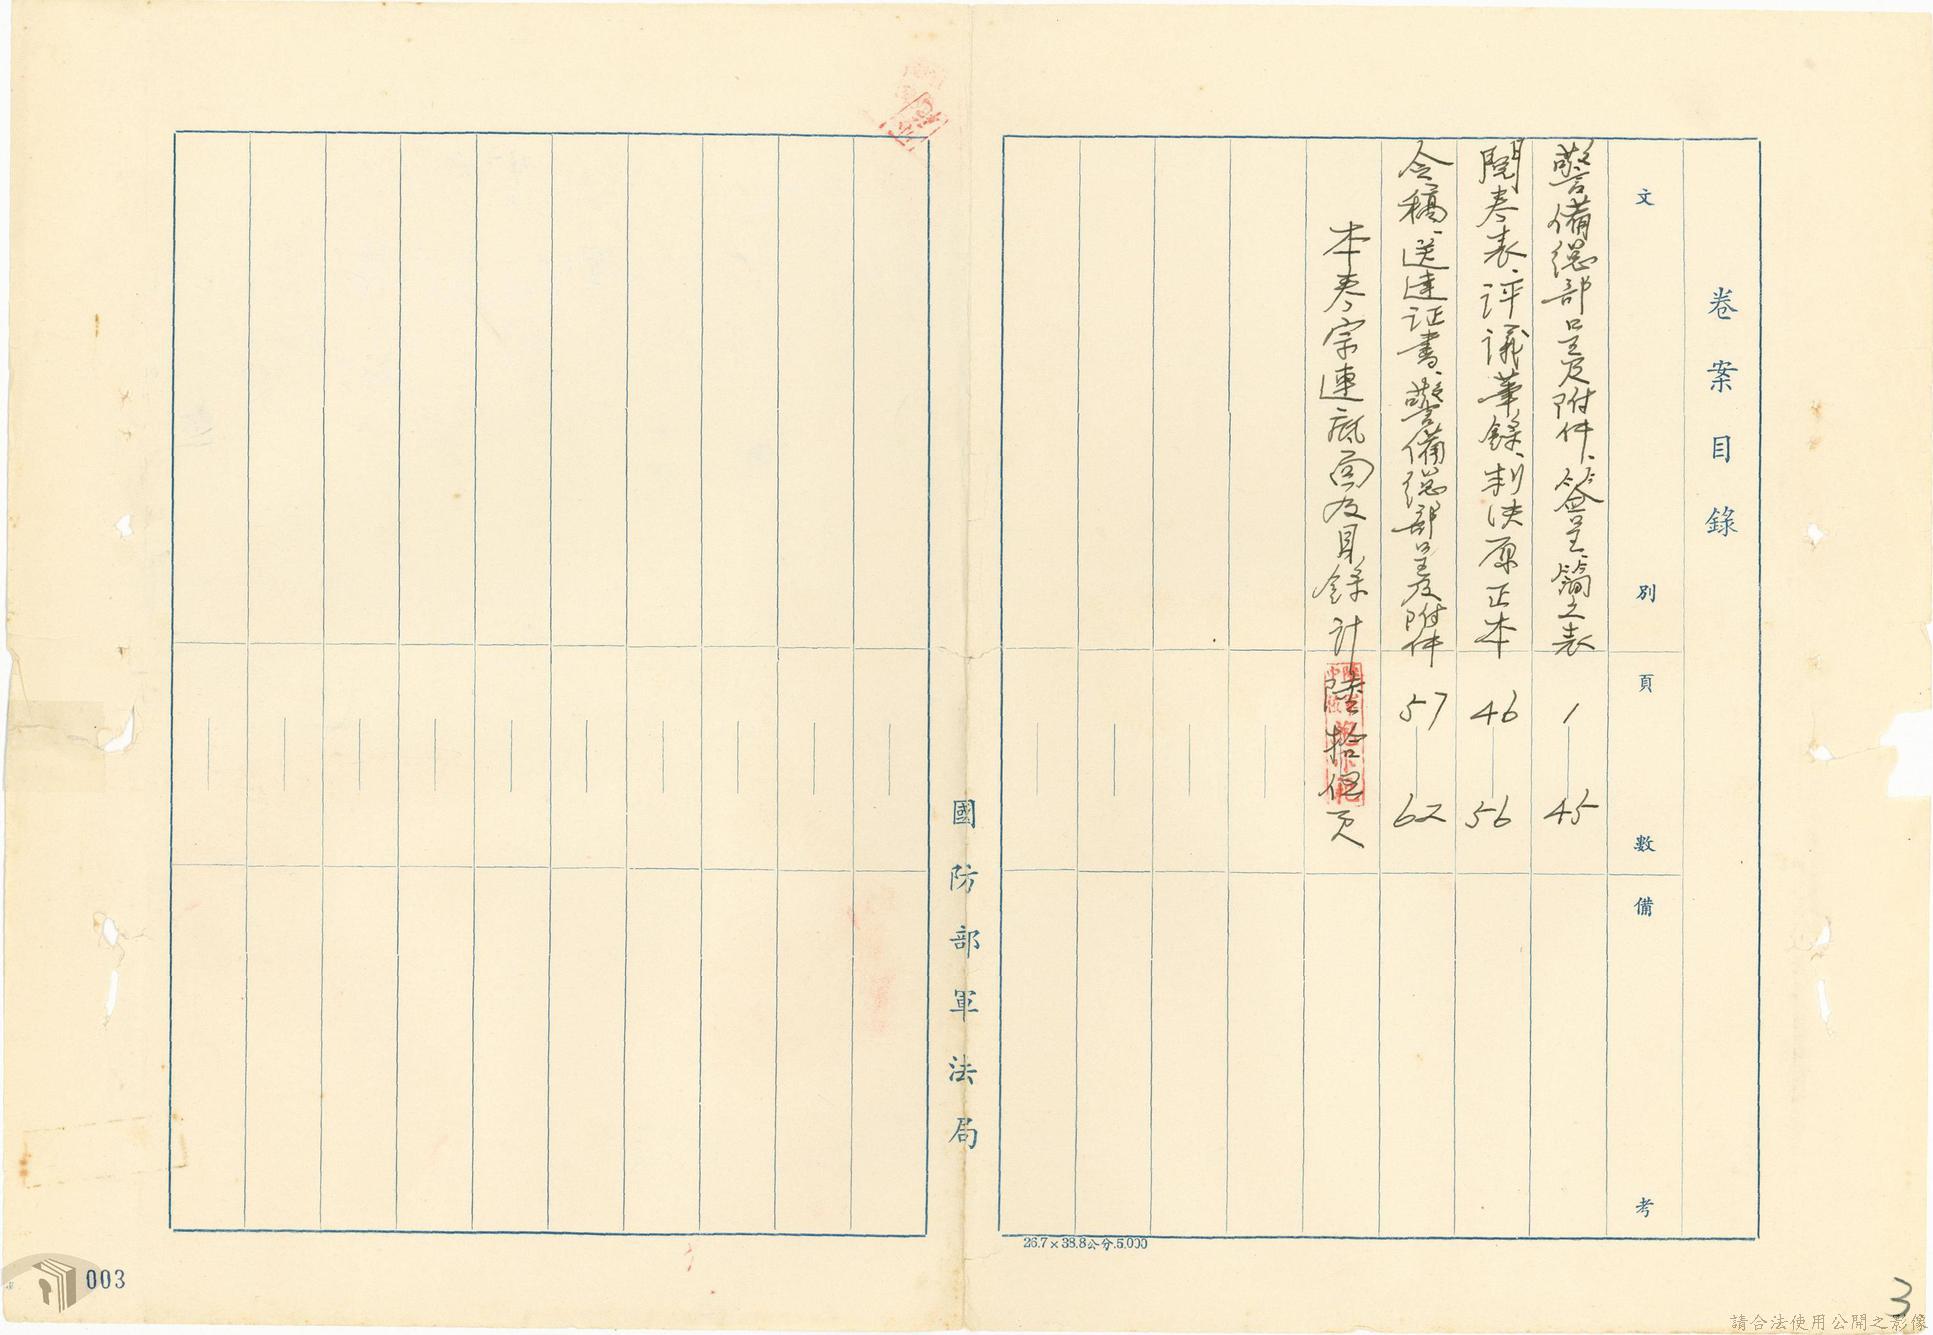 卷案目錄
文別
頁數
備考
警備總部呈及附件、簽呈、簡之表
1—45
閱卷表、評議筆錄、判決原正本
46—56
令稿、送達证書、警備總部呈及附件
57—62
本卷宗連底面及目錄計陸拾伍頁
國防部軍法局
26.7×38.8公分.5,000
003
3
請合法使用公開之影像